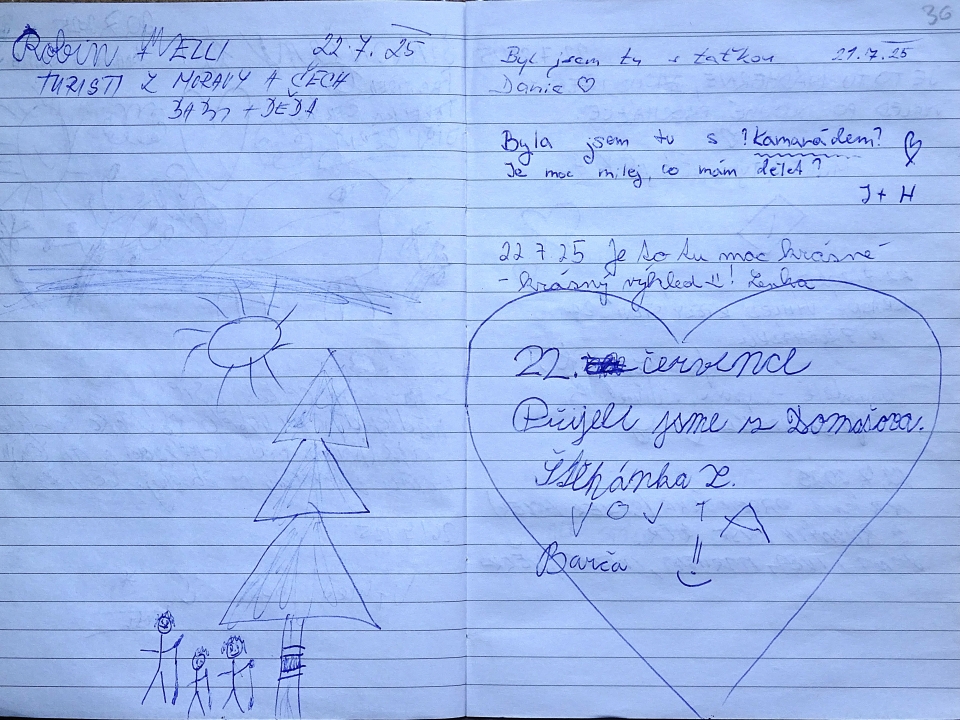 Robin 22.7.25
TURISTI Z MORAVY A ČECH
BABI + DĚDA
36
Byl jsem tu s taťkou 21.7.25
Danie ♡
Byla jsem tu s ?Kamarádem? ♡
Je moc milej, co mám dělat?
J + H
22 7 25 Je to tu moc krásné
- krásný výhled! Lenka
22. července
Přijeli jsme z Domašova.
Štěpánka Z.
VOJTA
Barča